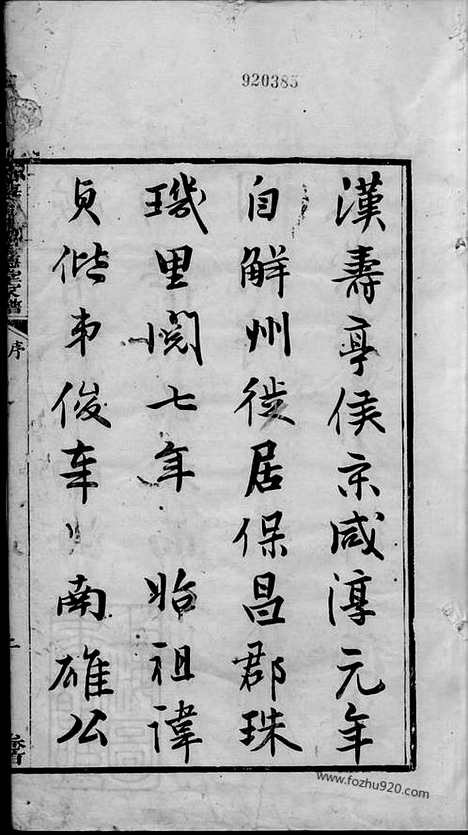 920385
漢壽亭侯宋咸淳元年
自解州徙居保昌郡珠
璣里閱七年　始祖諱
貞偕弟俊南雄公
家譜
序
www.fozhu920.com